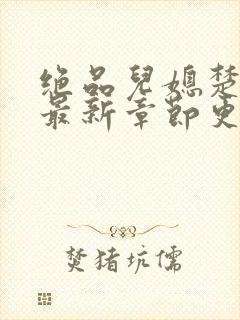 绝品兒媳楚
最新章节更
焚猪坑儒